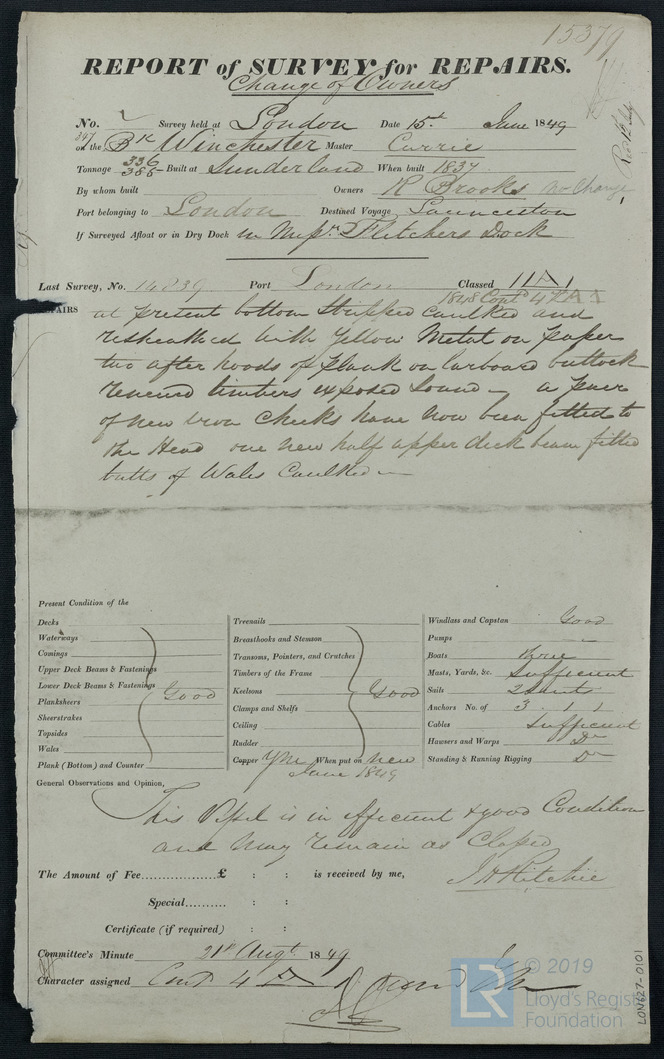 15379
REPORT of SURVEY for REPAIRS.
Change of Owners
No. Survey held at London Date 15th June 1849
347
on the Bk Winchester Master Currie
Tonnage 336 385 Built at Sunderland When built 1837
By whom built Owners R Brooks no Change
Port belonging to London Destined Voyage Launceston
If Surveyed Afloat or in Dry Dock in Messrs Fletchers Dock
Last Survey, No. 14839 Port London Classed 11 A 1
1848 Contd 4 A 1
REPAIRS at present bottom Stripped caulked and
resheathed with Yellow Metal on paper
two after hoods of plank on larboard buttock
renewed timbers exposed Sound – a pair
of new iron Cheeks have now been fitted to
the Head one new half upper deck beam fitted
butts of Wales Caulked –
Present Condition of the
Decks
Waterways
Comings
Upper Deck Beams & Fastenings
Lower Deck Beams & Fastenings
Planksheers
Sheerstrakes
Topsides
Wales
Plank (Bottom) and Counter
Good
Treenails
Breasthooks and Stemson
Transoms, Pointers, and Crutches
Timbers of the Frame
Keelsons
Clamps and Shelfs
Ceiling
Rudder
Good
Copper YM When put on new
June 1849
Windlass and Capstan Good
Pumps "
Boats three
Masts, Yards, &c. Sufficient
Sails 2 Suits
Anchors No. of 3 . 1 1
Cables Sufficient
Hawsers and Warps Do
Standing & Running Rigging Do
General Observations and Opinion,
This Vessel is in efficient & good Condition
and may remain as Classed
The Amount of Fee £ : : is received by me,
J H Ritchie
Special : :
Certificate (if required) : :
Committee's Minute 21st Augt 1849
Character assigned Cont 4 A
© 2019
LR
Lloyd's Register
Foundation
LON627-0101